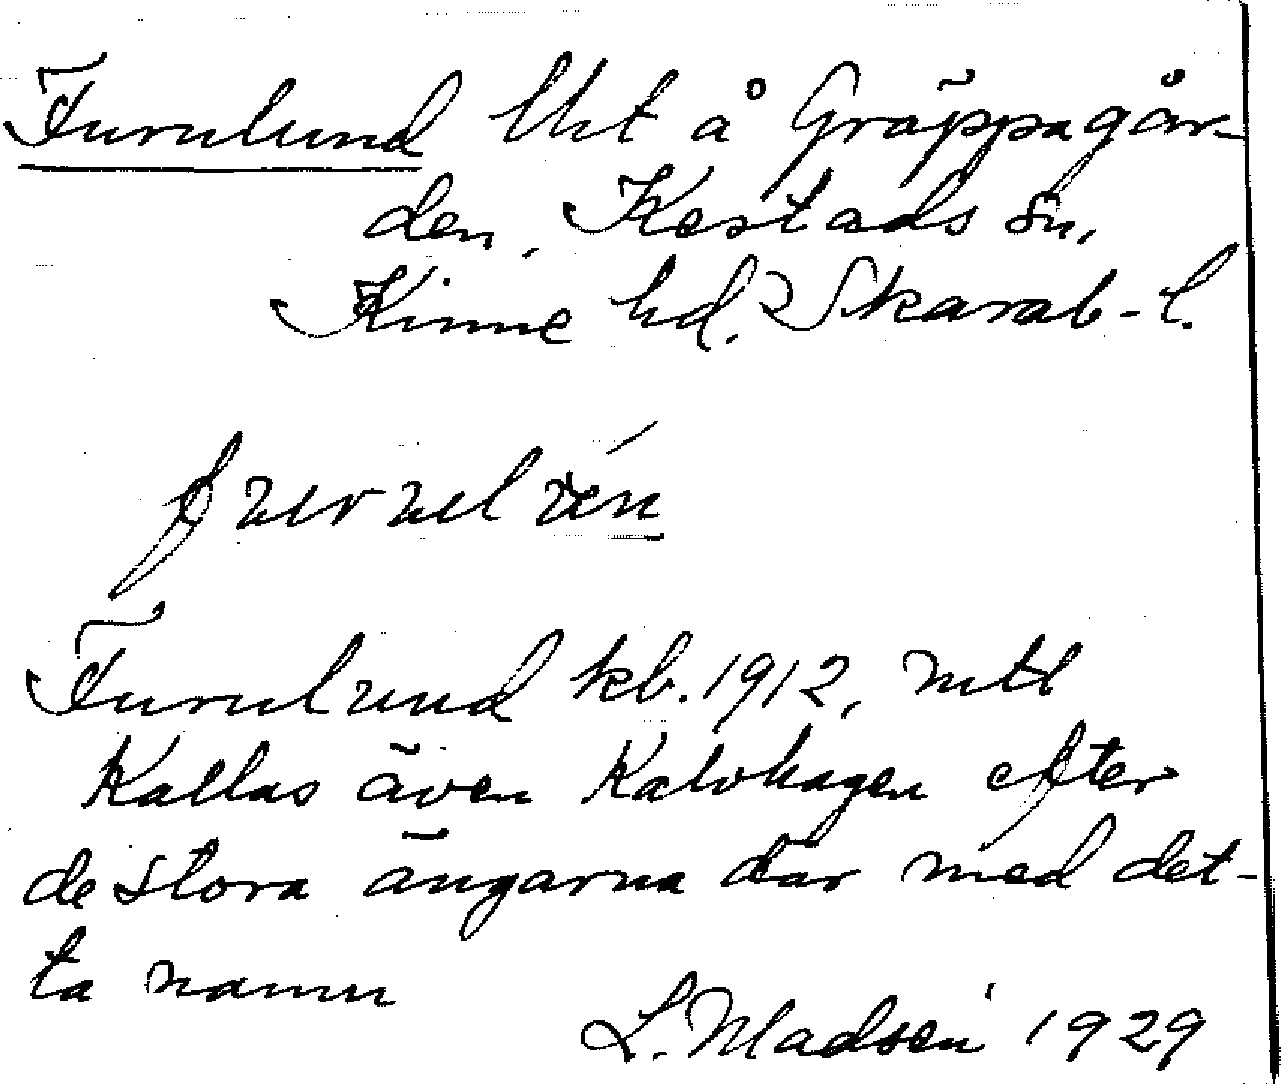 Furulund lht å Gräppagår-
den, Kestads sn,
Kinne hd. Skarab-l.
Furulund kb. 1912, mtl
Kallas även Kalvhagen efter
de stora ängarna där med det-
ta namn
L. Madsen 1929